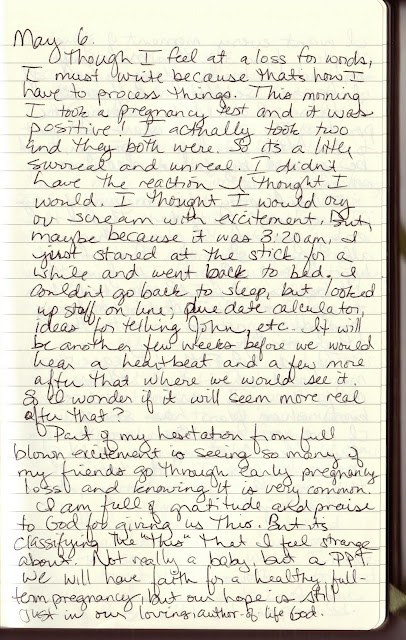 May 6.
Though I feel at a loss for words,
I must write because that's how I
have to process things. This morning
I took a pregnancy test and it was
positive! I actually took two
and they both were. So its a little
surreal and unreal. I didn't
have the reaction I thought I
would. I thought I would cry
or scream with excitement. But,
maybe because it was 3:20am, I
just stared at the stick for a
while and went back to bed. I
couldn't go back to sleep, but looked
up stuff on line; due date calculator,
ideas for telling John, etc.. It will
be another few weeks before we would
hear a heartbeat and a few more
after that where we would see it.
I wonder if it will seem more real
after that?
Part of my hesitation from full
blown excitement is seeing so many of
my friends go through early pregnancy
loss and knowing it is very common.
I am full of gratitude and praise
to God for giving us this. But its
classifying the "this" that I feel strange
about. Not really a baby, but a
We will have faith for a healthy, full-
term pregnancy, but our hope is still
just in our loving, author-of life God.